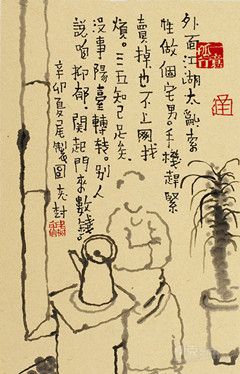 外面江湖太亂索
性做個宅男。手機趕緊
賣掉也不上网找
煩。三五知己足矣
沒事陽臺轉轉。别人
說咱抑郁。關起門來數錢。
辛卯夏尾製圖